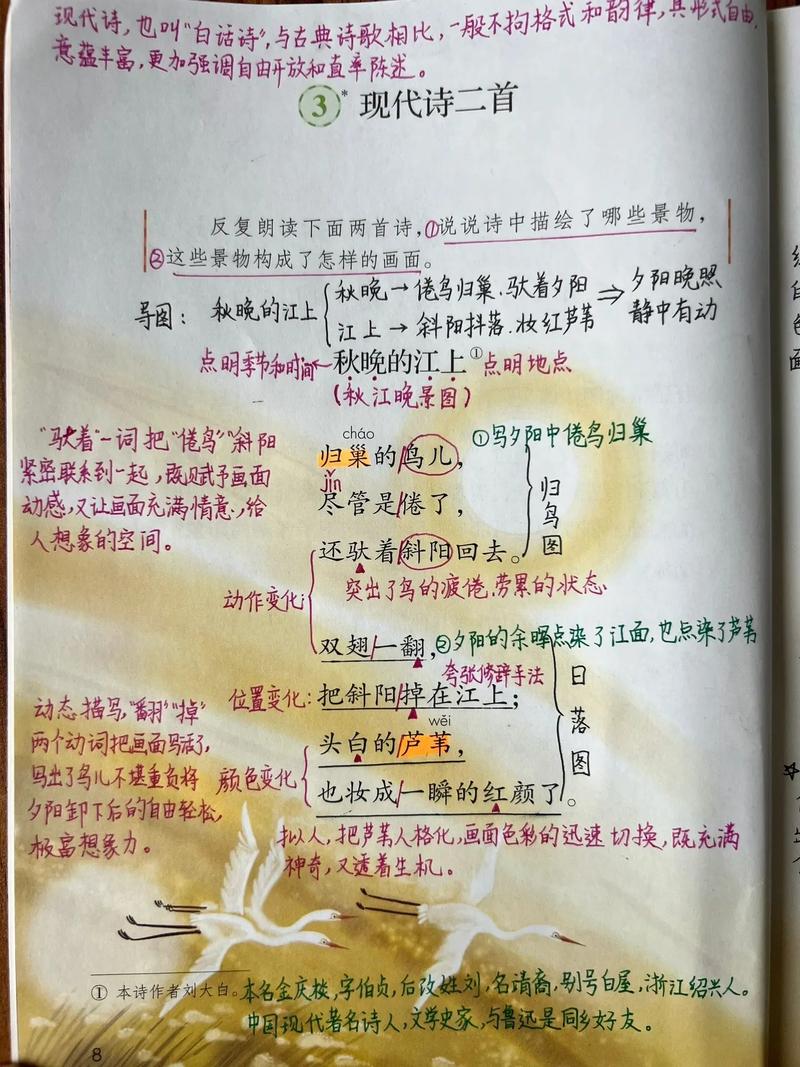 现代诗，也叫“白话诗”，与古典诗歌相比，一般不拘格式和韵律，其形式自由，
意蕴丰富，更加强调自由开放和直率陈述。
3* 现代诗二首
反复朗读下面两首诗，①说说诗中描绘了哪些景物，
②这些景物构成了怎样的画面。
导图：秋晚的江上
秋晚→倦鸟归巢、驮着夕阳
江上→斜阳抖落、妆红芦苇
⇒夕阳晚照
静中有动
点明季节和时间←秋晚的江上①点明地点
（秋江晚景图）
“驮着”一词把“倦鸟”“斜阳
紧密联系到一起，既赋予画面
动感，又让画面充满情意，给
人想象的空间。
cháo
归巢的鸟儿，
①写夕阳中倦鸟归巢
jǐn
尽管是倦了，
还驮着斜阳回去。
归鸟图
突出了鸟的疲倦、劳累的状态
动作变化：
双翅一翻，
②夕阳的余晖点染了江面，也点染了芦苇
夸张修辞手法
位置变化：把斜阳掉在江上；
wěi
头白的芦苇，
颜色变化
也妆成一瞬的红颜了。
日落图
动态描写，“翻”“掉”
两个动词把画面写活了，
写出了鸟儿不堪重负将
夕阳卸下后的自由轻松，
极富想象力。
拟人，把芦苇人格化，画面色彩的迅速切换，既充满
神奇，又透着生机。
① 本诗作者刘大白。本名金庆棪，字伯贞，后改姓刘，名清裔，别号白屋，浙江绍兴人。
中国现代著名诗人，文学史家，与鲁迅是同乡好友。
8